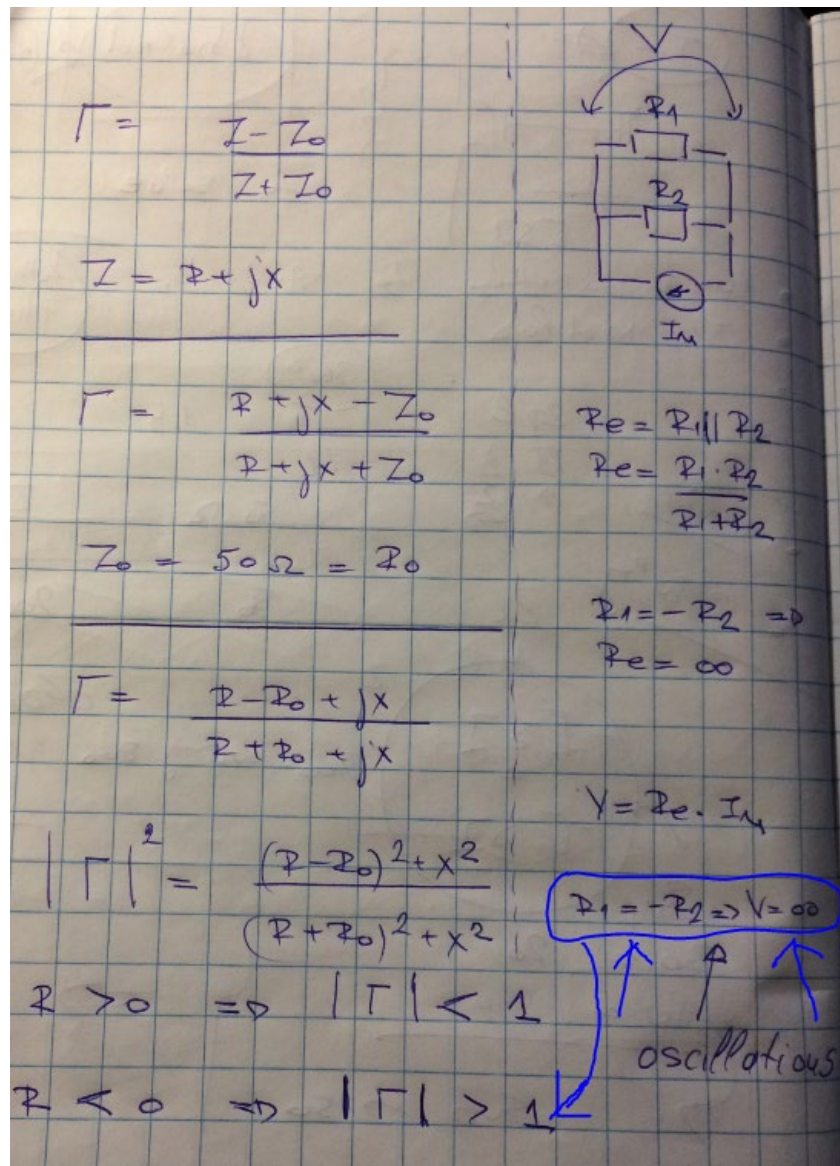 Γ = Z - Z0
Z + Z0
Z = R + jX
Γ = R + jX - Z0
R + jX + Z0
Z0 = 50 Ω = R0
Γ = R - R0 + jX
R + R0 + jX
|Γ|² = (R - R0)² + X²
(R + R0)² + X²
R > 0 => |Γ| < 1
R < 0 => |Γ| > 1
V
R1
R2
In
Re = R1 || R2
Re = R1 · R2
R1 + R2
R1 = - R2 =>
Re = ∞
V = Re · In
R1 = - R2 => V = ∞
oscillations